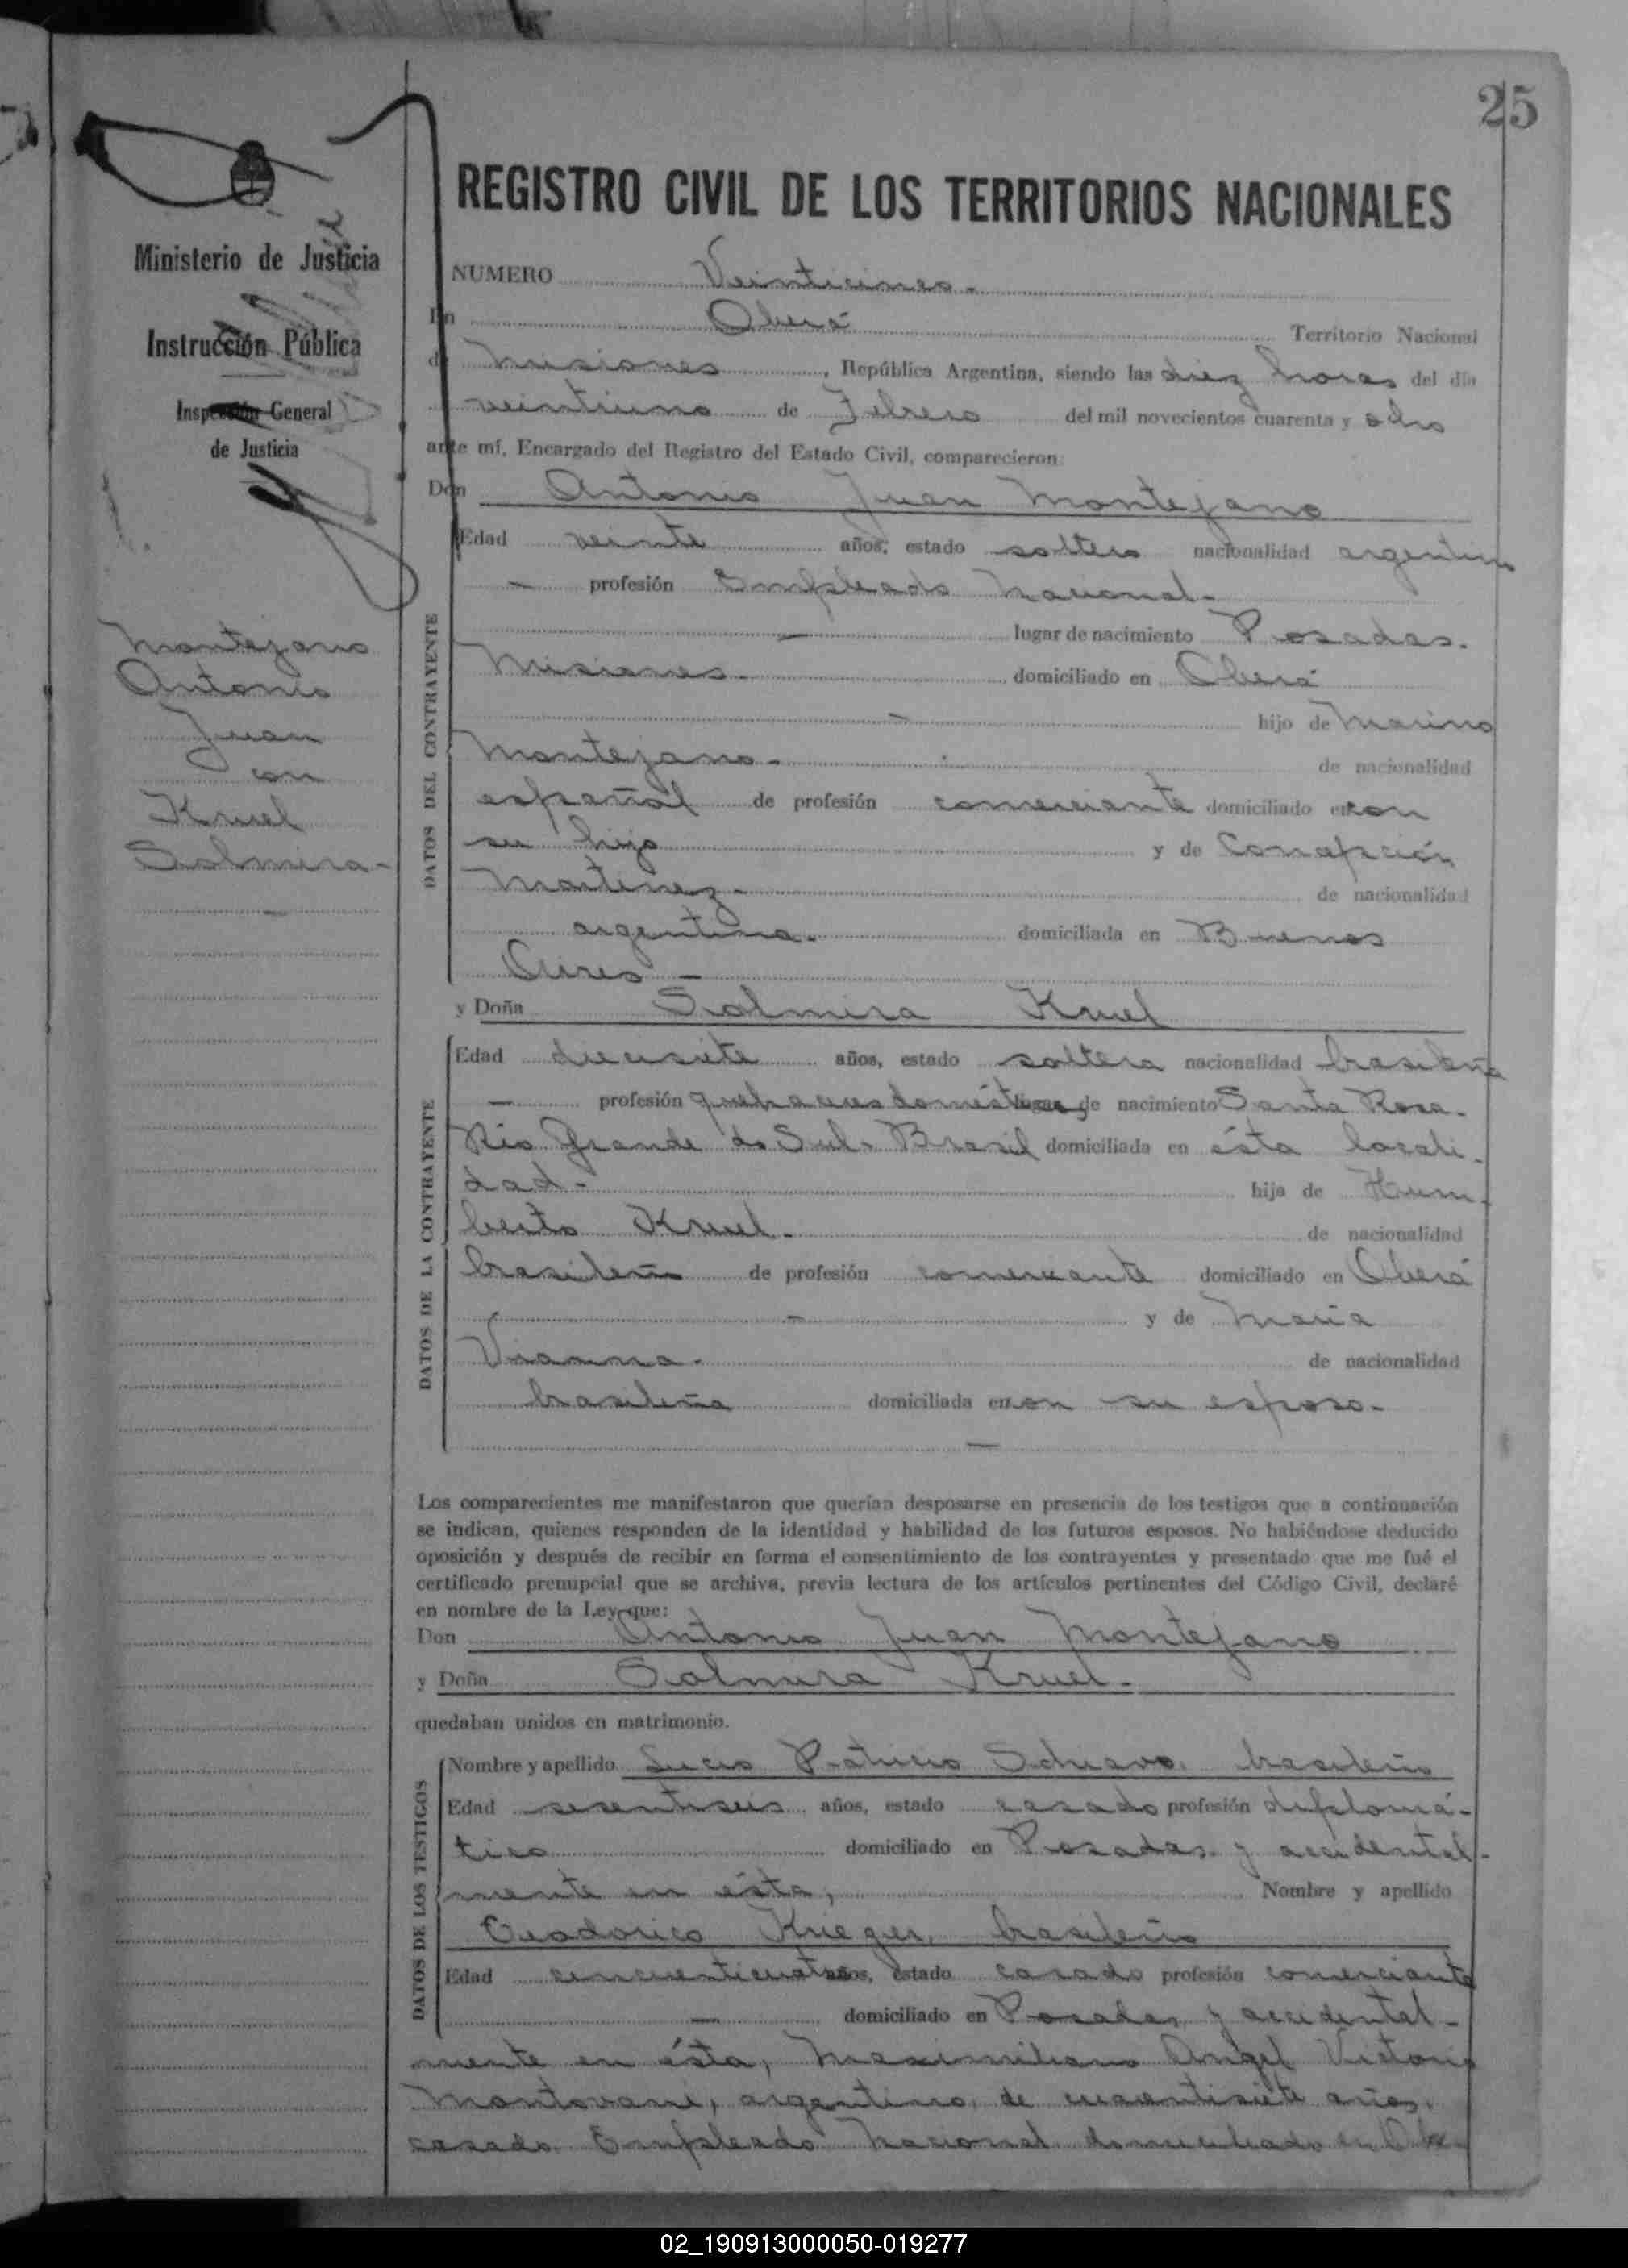 25
Ministerio de Justicia
Instrucción Pública
Inspección General
de Justicia
Montejano
Antonio
Juan
con
Kruel
Salmira-
REGISTRO CIVIL DE LOS TERRITORIOS NACIONALES
NUMERO Veinticinco.-
En Oberá Territorio Nacional
de Misiones, República Argentina, siendo las diez horas del día
veintiuno de Febrero del mil novecientos cuarenta y ocho
ante mí, Encargado del Registro del Estado Civil, comparecieron:
Don Antonio Juan Montejano
Edad veinte años, estado soltero nacionalidad argentino
- profesión Empleado Nacional.-
- lugar de nacimiento Posadas.
Misiones.- domiciliado en Oberá
- hijo de Marino
Montejano.- de nacionalidad
español de profesión comerciante domiciliado en con
su hijo y de Concepción
Martinez.- de nacionalidad
argentina.- domiciliada en Buenos
Aires -
y Doña Salmira Kruel
Edad diecisiete años, estado soltera nacionalidad brasileña
- profesión quehaceres domésticos lugar de nacimiento Santa Rosa.
Rio Grande do Sul. Brasil domiciliada en ésta locali-
dad.- hija de Hum-
berto Kruel.- de nacionalidad
brasileño de profesión comerciante domiciliado en Oberá
- y de Maria
Vianna.- de nacionalidad
brasileña domiciliada en con su esposo.-
-
Los comparecientes me manifestaron que querían desposarse en presencia de los testigos que a continuación
se indican, quienes responden de la identidad y habilidad de los futuros esposos. No habiéndose deducido
oposición y después de recibir en forma el consentimiento de los contrayentes y presentado que me fué el
certificado prenupcial que se archiva, previa lectura de los artículos pertinentes del Código Civil, declaré
en nombre de la Ley que:
Don Antonio Juan Montejano
y Doña Salmira Kruel.-
quedaban unidos en matrimonio.
Nombre y apellido Lucio Schiavo, brasileño
Edad sesentiseis años, estado casado profesión diplomá-
tico domiciliado en Posadas y accidental-
mente en ésta, Nombre y apellido
Teodorico Krieger, brasileño
Edad cincuenticuatro años, estado casado profesión comerciante
- domiciliado en Posadas y accidental-
mente en ésta, Maximiliano Angel Victorio
Mantovani, argentino, de cuarentisiete años,
casado. Empleado Nacional domiciliado en Obe-
DATOS DEL CONTRAYENTE
DATOS DE LA CONTRAYENTE
DATOS DE LOS TESTIGOS
02_190913000050-019277